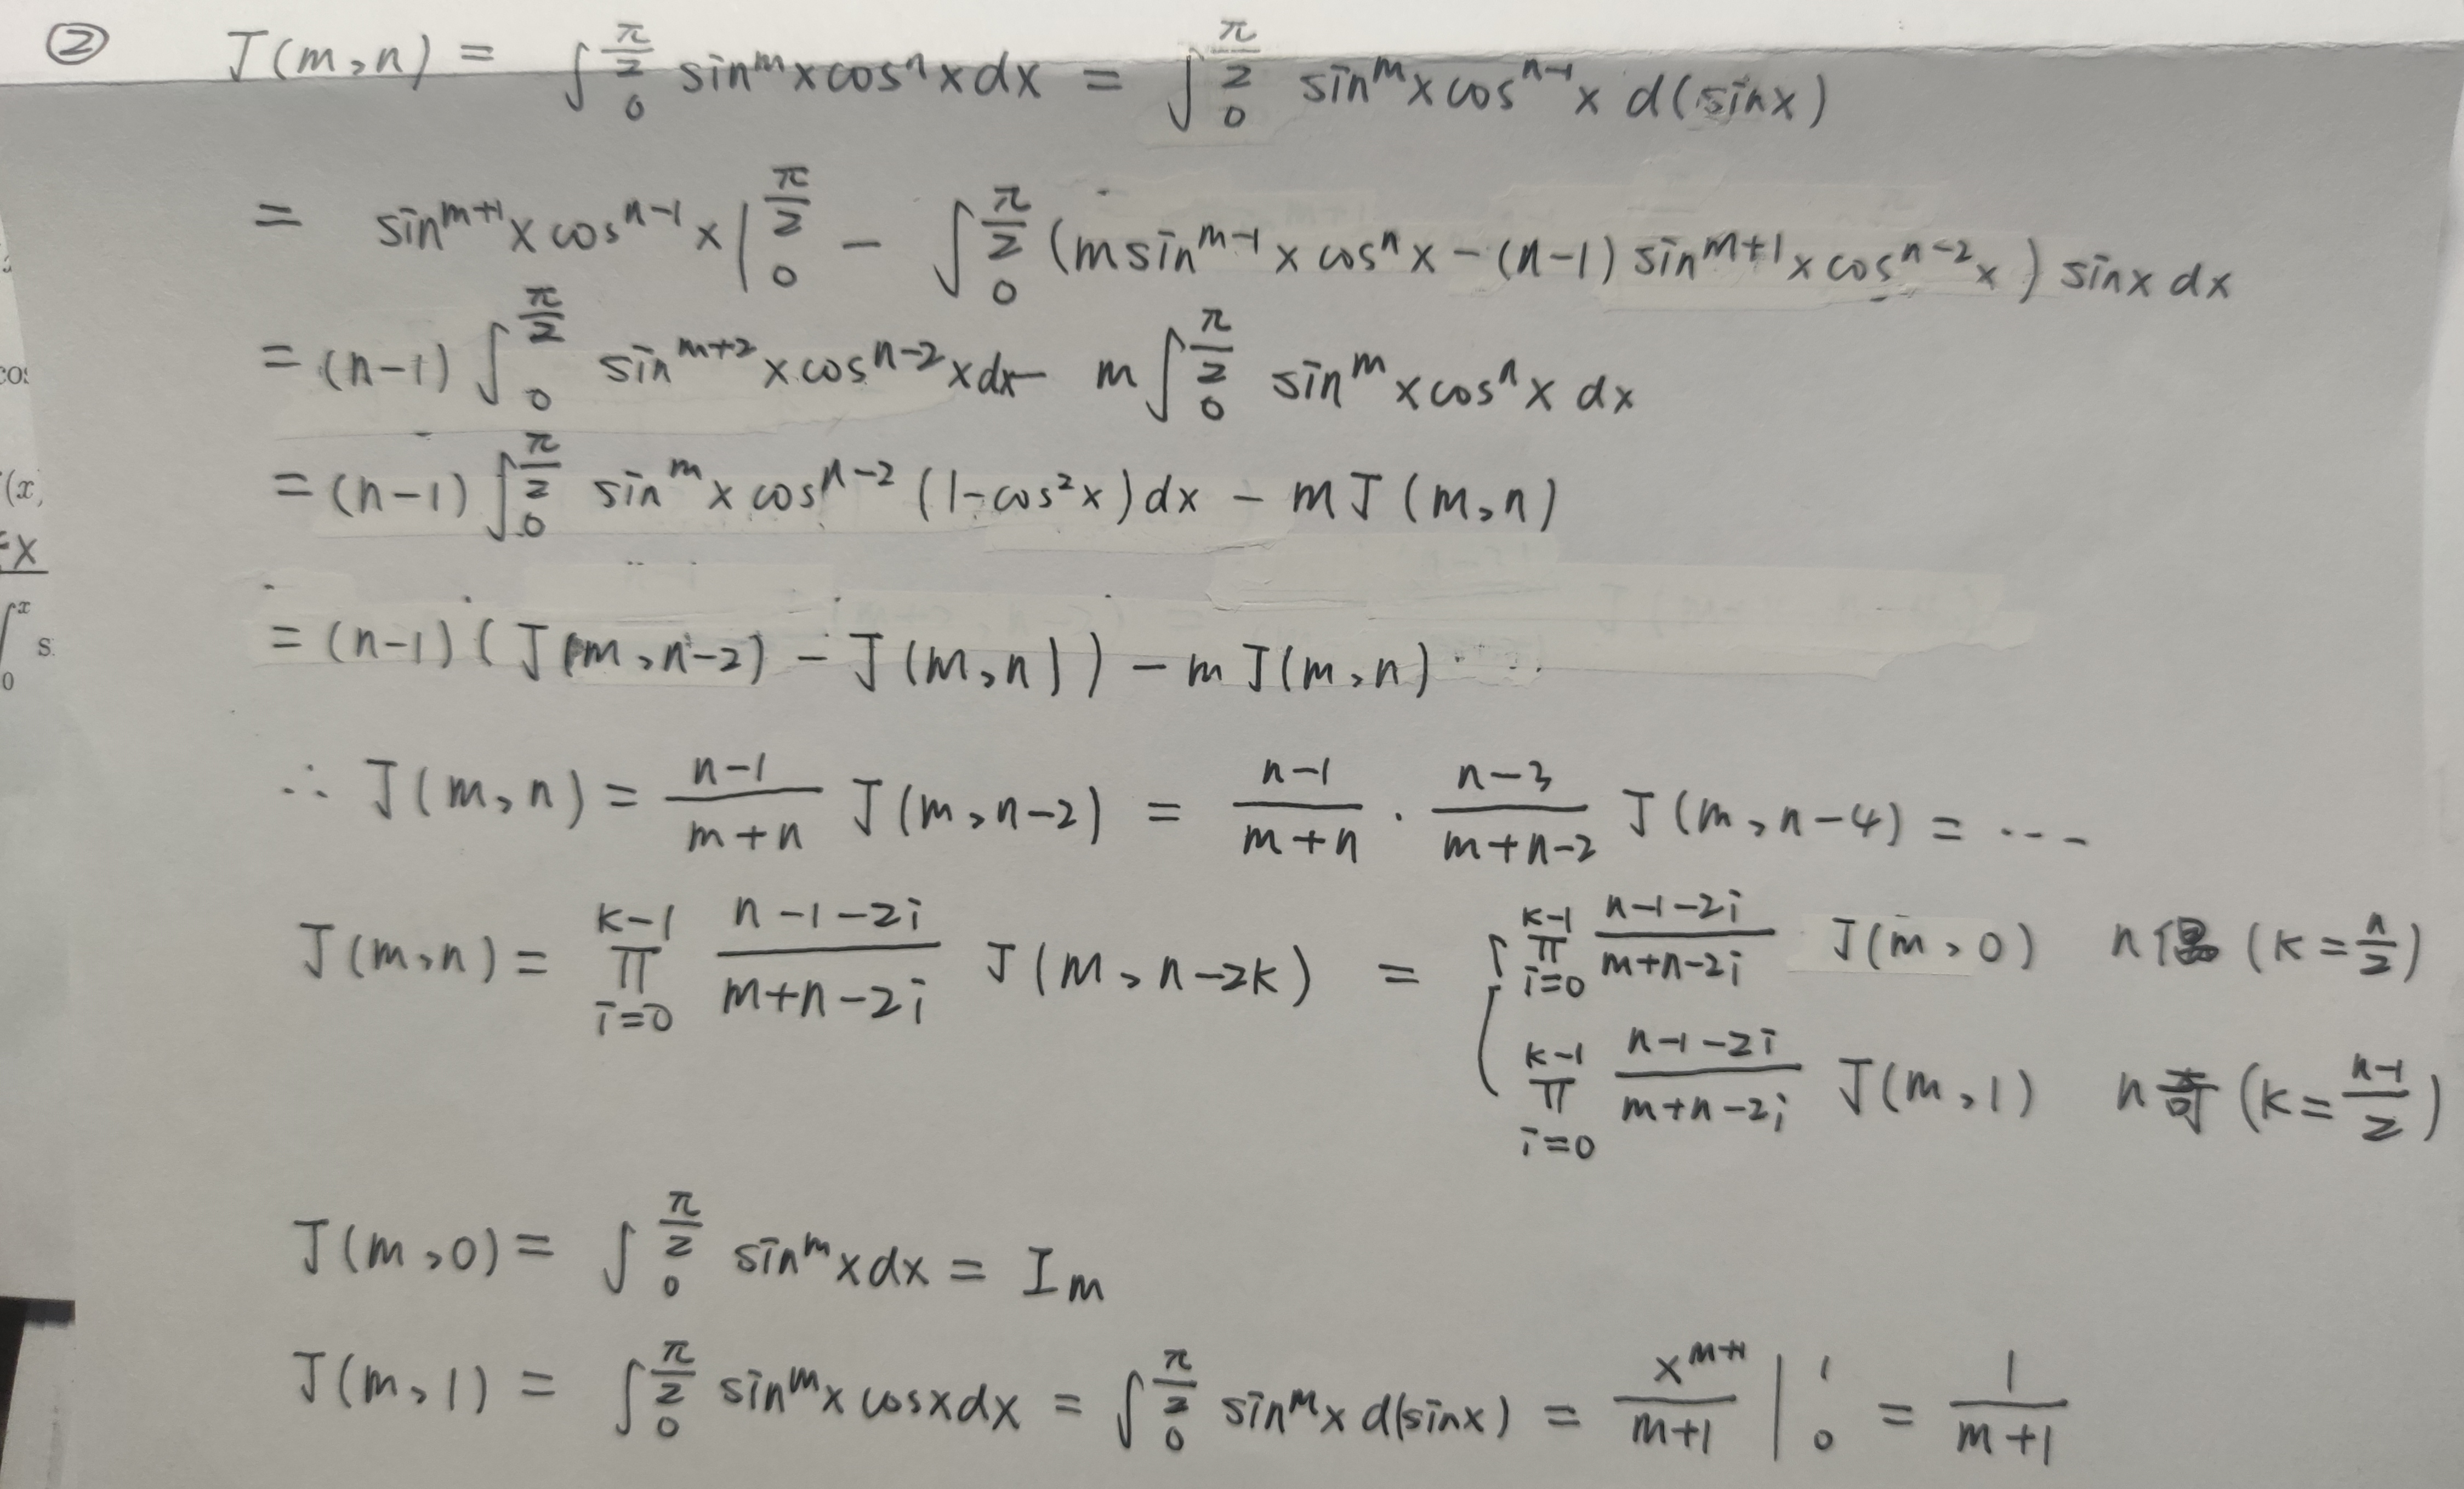 ② J(m,n) = ∫_0^{π/2} sin^m x cos^n x dx = ∫_0^{π/2} sin^m x cos^{n-1} x d(sinx)
= sin^{m+1} x cos^{n-1} x |_0^{π/2} - ∫_0^{π/2} (m sin^{m-1} x cos^n x - (n-1) sin^{m+1} x cos^{n-2} x) sinx dx
= (n-1) ∫_0^{π/2} sin^{m+2} x cos^{n-2} x dx - m ∫_0^{π/2} sin^m x cos^n x dx
= (n-1) ∫_0^{π/2} sin^m x cos^{n-2} (1-cos^2 x) dx - m J(m,n)
= (n-1) (J(m,n-2) - J(m,n)) - m J(m,n)
∴ J(m,n) = \frac{n-1}{m+n} J(m,n-2) = \frac{n-1}{m+n} · \frac{n-3}{m+n-2} J(m,n-4) = ⋯
J(m,n) = ∏_{i=0}^{k-1} \frac{n-1-2i}{m+n-2i} J(m,n-2k) = { ∏_{i=0}^{k-1} \frac{n-1-2i}{m+n-2i} J(m,0) n偶 (k=\frac{n}{2})
∏_{i=0}^{k-1} \frac{n-1-2i}{m+n-2i} J(m,1) n奇 (k=\frac{n-1}{2})
J(m,0) = ∫_0^{π/2} sin^m x dx = I_m
J(m,1) = ∫_0^{π/2} sin^m x cosx dx = ∫_0^{π/2} sin^m x d(sinx) = \frac{x^{m+1}}{m+1} |_0^1 = \frac{1}{m+1}